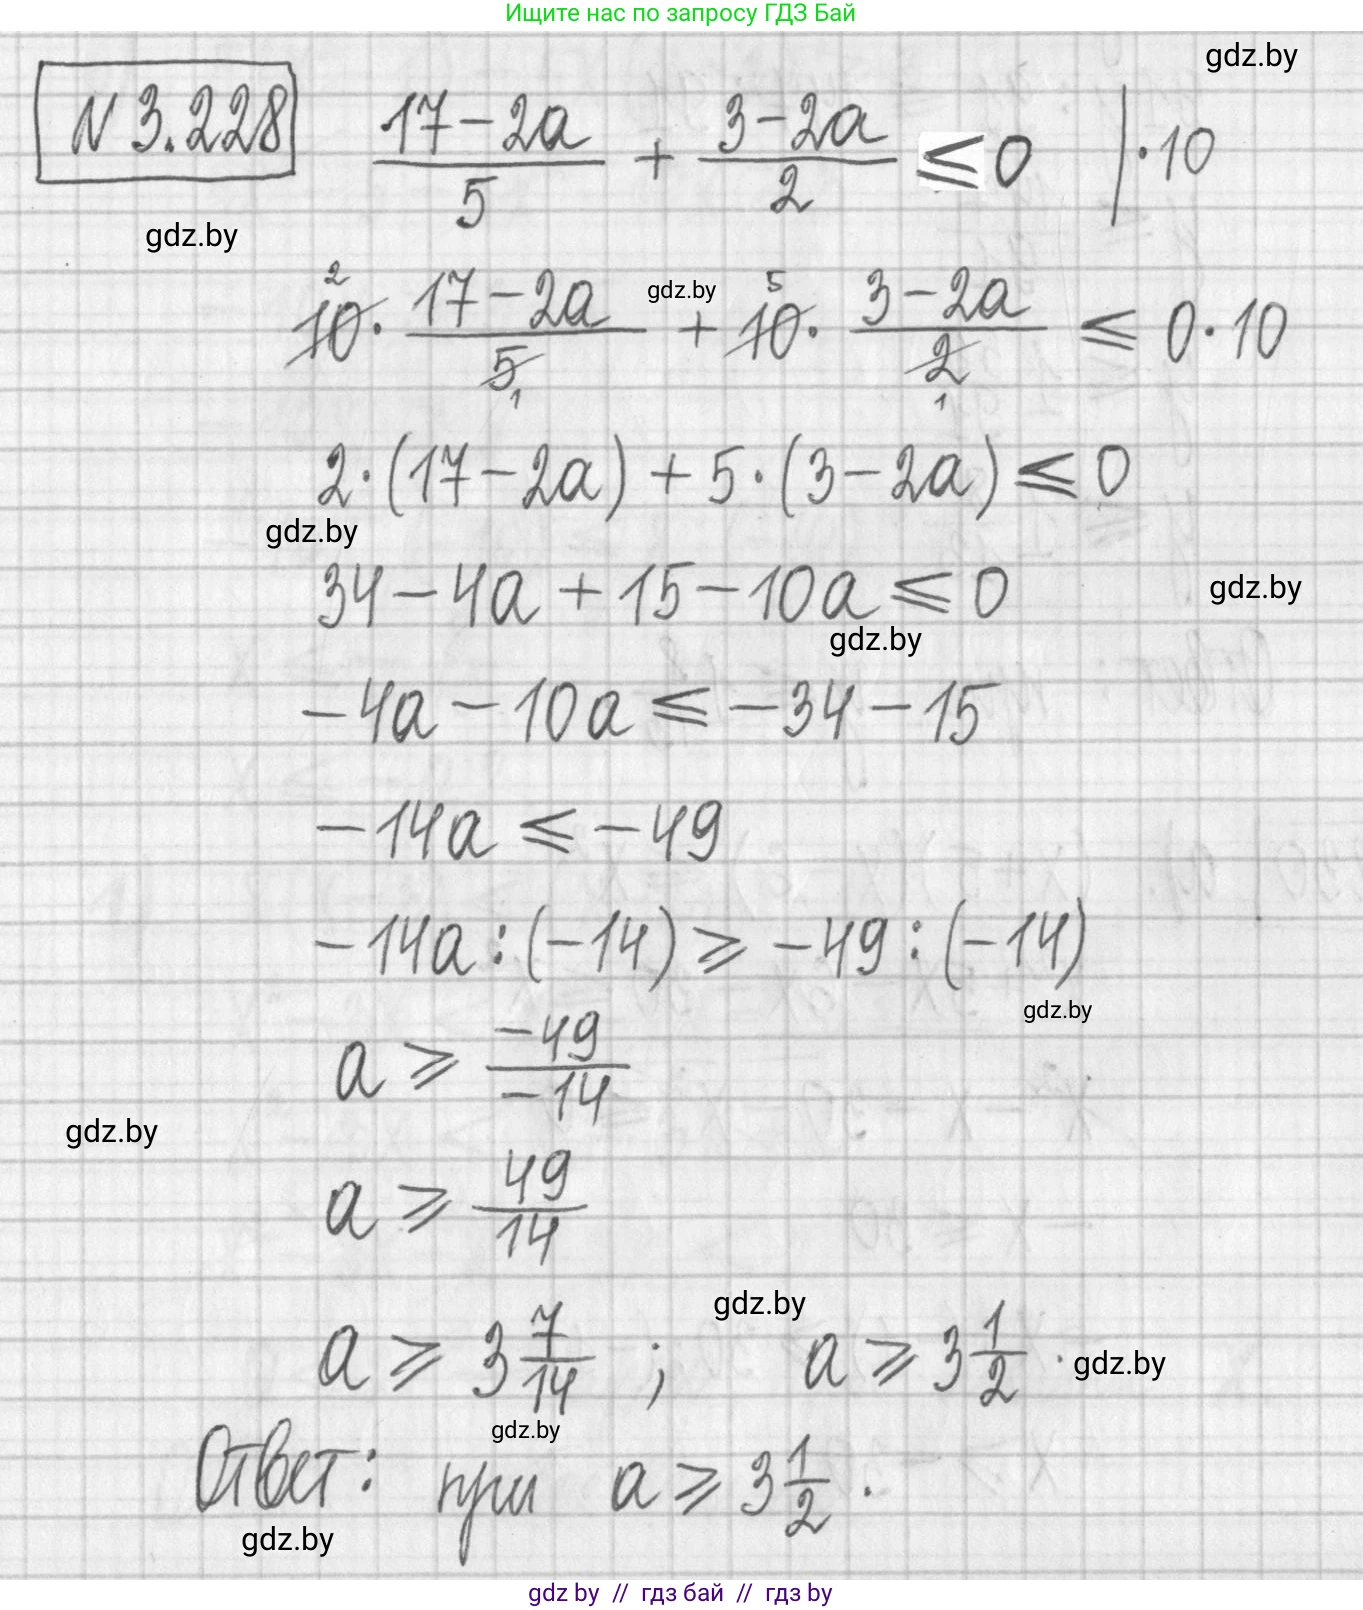 Ищите нас по запросу ГДЗ Бай
gdz.by
N 3.228 (17-2a)/5 + (3-2a)/2 ⩽ 0 | ·10
gdz.by
2 5
10 · (17-2a)/5 + gdz.by 10 · (3-2a)/2 ⩽ 0·10
1 1
2·(17-2a)+5·(3-2a)⩽0
gdz.by
34-4a+15-10a⩽0
gdz.by
gdz.by
-4a-10a⩽-34-15
-14a⩽-49
-14a:(-14)⩾-49:(-14)
gdz.by
a⩾ -49/-14
gdz.by
a⩾ 49/14
gdz.by
a⩾3 7/14 ; a⩾3 1/2 .
gdz.by
gdz.by
Ответ: при a⩾3 1/2 .
gdz.by
gdz by // гдз бай // гдз by